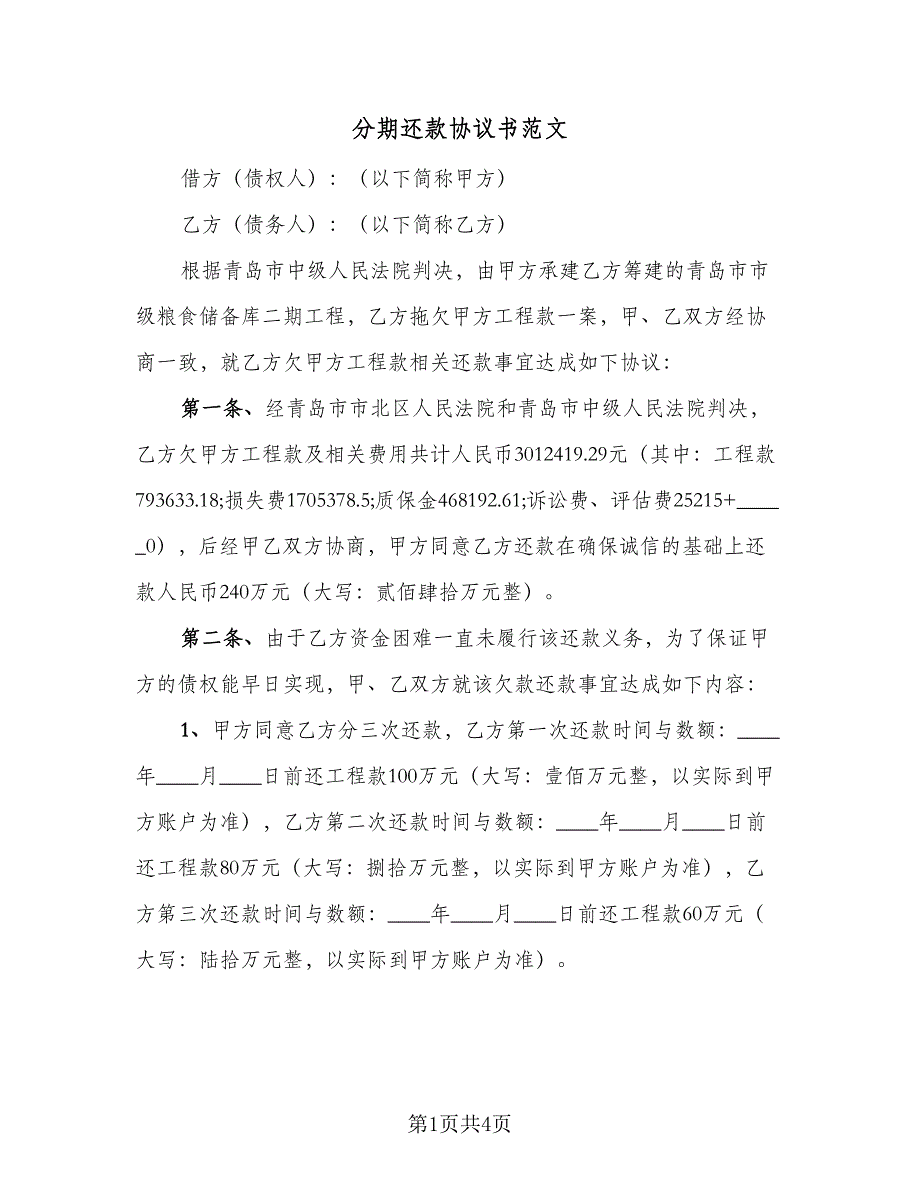 分期还款协议书范文
借方（债权人）：（以下简称甲方）
乙方（债务人）：（以下简称乙方）
根据青岛市中级人民法院判决，由甲方承建乙方筹建的青岛市市
级粮食储备库二期工程，乙方拖欠甲方工程款一案，甲、乙双方经协
商一致，就乙方欠甲方工程款相关还款事宜达成如下协议：
第一条、经青岛市市北区人民法院和青岛市中级人民法院判决，
乙方欠甲方工程款及相关费用共计人民币3012419.29元（其中：工程款
793633.18;损失费1705378.5;质保金468192.61;诉讼费、评估费25215+____
_0），后经甲乙双方协商，甲方同意乙方还款在确保诚信的基础上还
款人民币240万元（大写：贰佰肆拾万元整）。
第二条、由于乙方资金困难一直未履行该还款义务，为了保证甲
方的债权能早日实现，甲、乙双方就该欠款还款事宜达成如下内容：
1、甲方同意乙方分三次还款，乙方第一次还款时间与数额：____
年____月____日前还工程款100万元（大写：壹佰万元整，以实际到甲
方账户为准），乙方第二次还款时间与数额：____年____月____日前
还工程款80万元（大写：捌拾万元整，以实际到甲方账户为准），乙
方第三次还款时间与数额：____年____月____日前还工程款60万元（
大写：陆拾万元整，以实际到甲方账户为准）。
第1页共4页